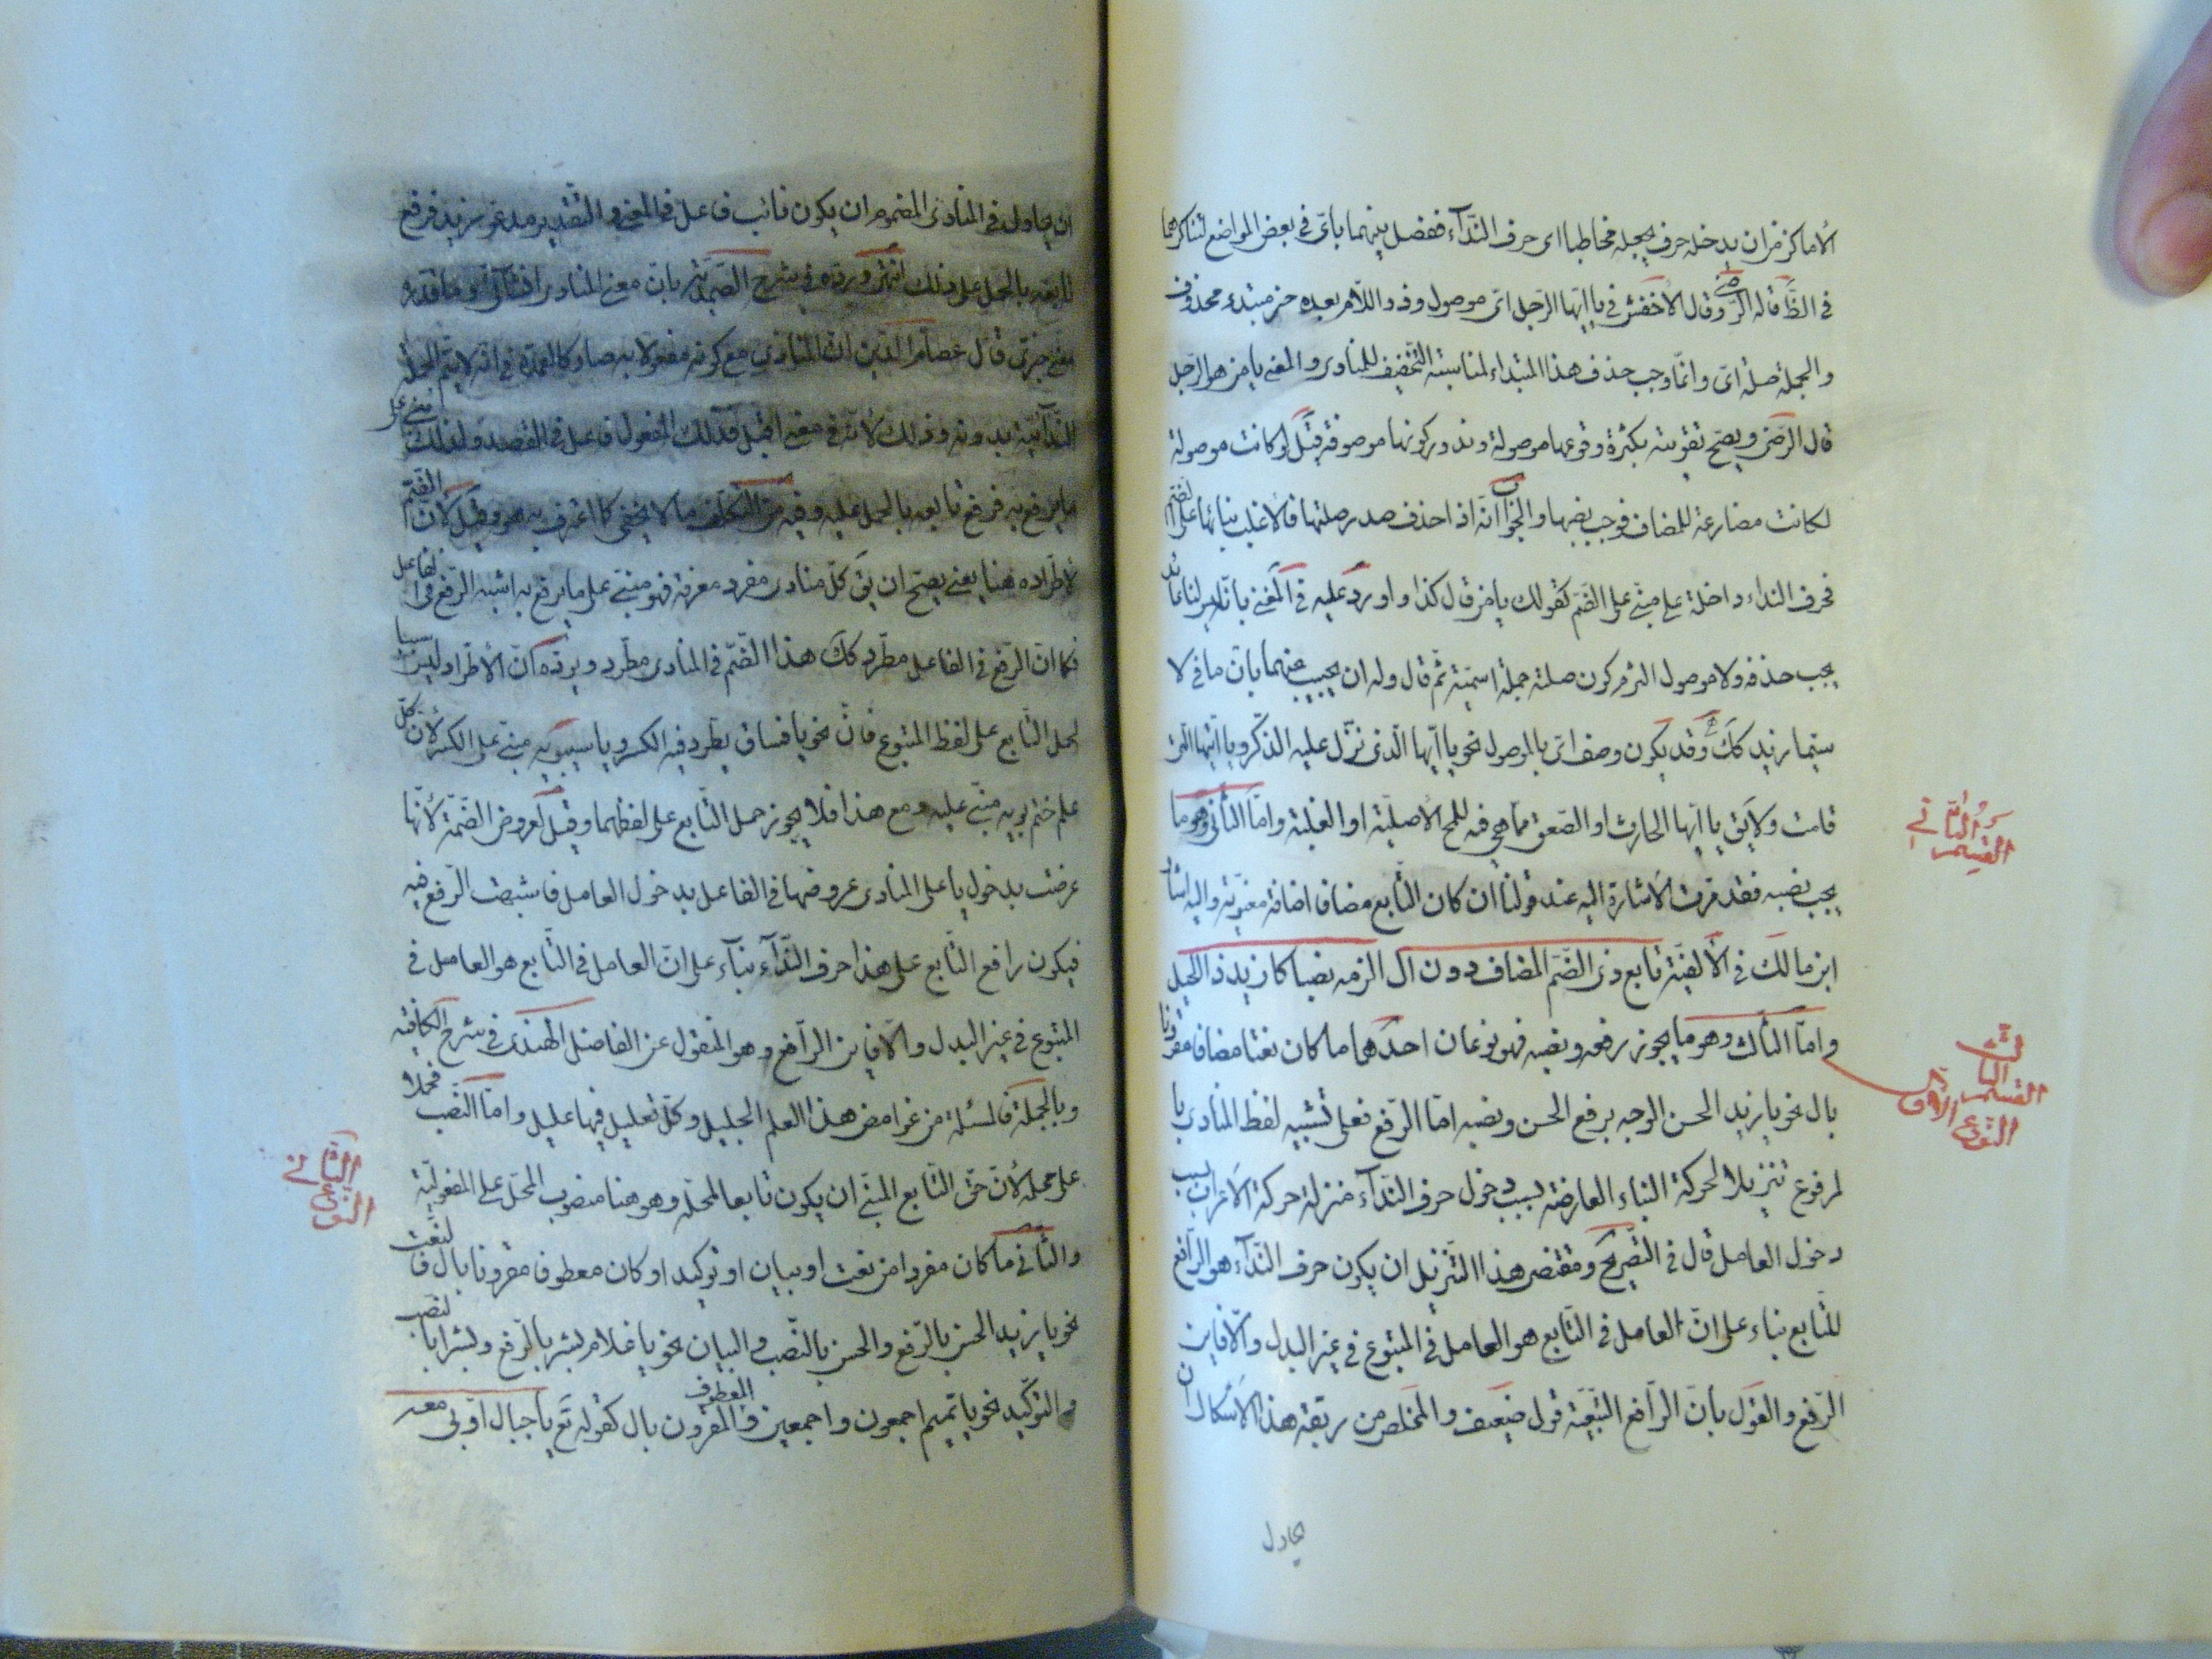 الأماكن من ان يدخله حرف يجعله مخاطبا اى حرف النداء ففصل بينهما باىّ فى بعض المواضع لتناكرهما
فى الظ قاله الرضى وقال الأخفش فى يا ايّها الرّجل اىّ موصول وذو اللّام بعده خبر مبتدء محذوف
والجملة صلة اىّ وانّما وجب حذف هذا المبتداء لمناسبته التّخفيف للمنادى والمعنى يا من هو الرّجل
قال الرّضى ويصحّ تقويته بكثرة وقوعها موصولة وندور كونها موصوفة قيل لو كانت موصولة
لكانت مضارعة للمضاف فوجب نصبها والجواب انّه اذا حذف صدر صلتها فالاغلب بنائها على الضّم
فحرف النداء داخلة على مبنّى على الضّم كقولك يا من قال كذا واورد عليه فى المغنى بانّه ليس لنا عائد
يجب حذفه ولا موصول التزم كون صلته جملة اسميّة ثمّ قال وله ان يجيب عنهما بانّ ما فى لا
سيّما زيد كك وقد يكون وصف اىّ بالموصول نحو يا ايّها الّذى نزّل عليه الذّكر ويا ايّتها الّتى
قامت ولا يق يا ايّها الحارث او الصّعق ممّا هى فيه للمح الأصليّة او الغلبة وامّا الثّانى وهو ما
يجب نصبه فقد مرّت الأشارة اليه عند قولنا ان كان التّابع مضافا اضافة معنويّة واليه اشار
ابن مالك فى الألفيّة تابع ذى الضّمّ المضاف دون ال الزمه نصبا كازيد ذا الحيل
وامّا الثّالث وهو ما يجوز رفعه ونصبه فهو نوعان احدهما ما كان نعتا مضافا مقرونا
بال نحو يا زيد الحسن الوجه برفع الحسن ونصبه امّا الرّفع فعلى تشبيه لفظ المنادى با
لمرفوع تنزيلا لحركة البناء العارضة بسبب دخول حرف النّداء منزلة حركة الاعراب بسبب
دخول العامل قال فى التّصريح ومقتضى هذا التّنزيل ان يكون حرف النّداء هو الرّافع
للتّابع بناء على انّ العامل فى التّابع هو العامل فى المتبوع فى غير البدل والّا فاين
الرّفع والقول بانّ الرّافع التّبعيّة قول ضعيف والمخلص من ربقة هذا الأشكال ان
يحاول
القسم الثّانى
القسم الثّالث
النّوع الأوّل
ان يحاول فى المنادى المضموم ان يكون نائب فاعل فى المعنى والتّقدير مدعو زيد فرفع
تابعه بالحمل على ذلك انتهى وردّه فى شرح الصّمديّة بانّ معنى المنادى انشائى وما قدّره
معنى خبرىّ قال عصام الدّين انّ المنادى مع كونه مفعولا به صار كالعمدة فى انّه لا يتمّ الجملة
النّدائيّة بدونه وذلك لأنّه فى معنى اقبل فذلك المفعول فاعل فى القصد ولذلك بنى على
ما يرفع به فرفع تابعه بالحمل عليه وفيه من التّكلّف ما لا يخفى كما اعترف به هو وقيل لأنّ الضّمّ
لأطّراده هنا يعنى يصحّ ان يق كلّ منادى مفرد معرفة فهو مبنّى على ما يرفع به اشبه الرّفع فى الفاعل
فكما انّ الرّفع فى الفاعل مطّرد كك هذا الضّمّ فى المنادى مطّرد ويردّه انّ الأطّراد ليس سببا
لحمل التّابع على لفظ المتبوع فانّ نحو يا فساق يطّرد فيه الكسر ويا سيبويه مبنّى على الكسر لأنّ كلّ
علم ختم بويه مبنّى عليه ومع هذا فلا يجوز حمل التّابع على لفظهما وقيل لعروض الضّمّة لأنّها
عرضت بدخول يا على المنادى عروضها فى الفاعل بدخول العامل فاشبهت الرّفع فيه
فيكون رافع التّابع على هذا حرف النّداء بناء على انّ العامل فى التّابع هو العامل فى
المتبوع فى غير البدل والّا فاين الرّافع وهو المنقول عن الفاضل الهندى فى شرح الكافية
وبالجملة فالمسئلة من غوامض هذا العلم الجليل وكلّ تعليل فيها عليل وامّا النّصب فحملا
على محله لأنّ حقّ التّابع المبنّى ان يكون تابعا لمحلّه وهو هنا منصوب المحلّ على المفعوليّة
والثّانى ما كان مفردا من نعت او بيان او توكيد او كان معطوفا مقرونا بال فالنّعت
نحو يا زيد الحسن بالرّفع والحسن بالنّصب والبيان نحو يا غلام بشر بالرّفع وبشرا بالنصب
والتّوكيد نحو يا تميم اجمعون واجمعين والمعطوف المقرون بال كقوله تع يا جبال اوّبى معه
النّوع الثّانى